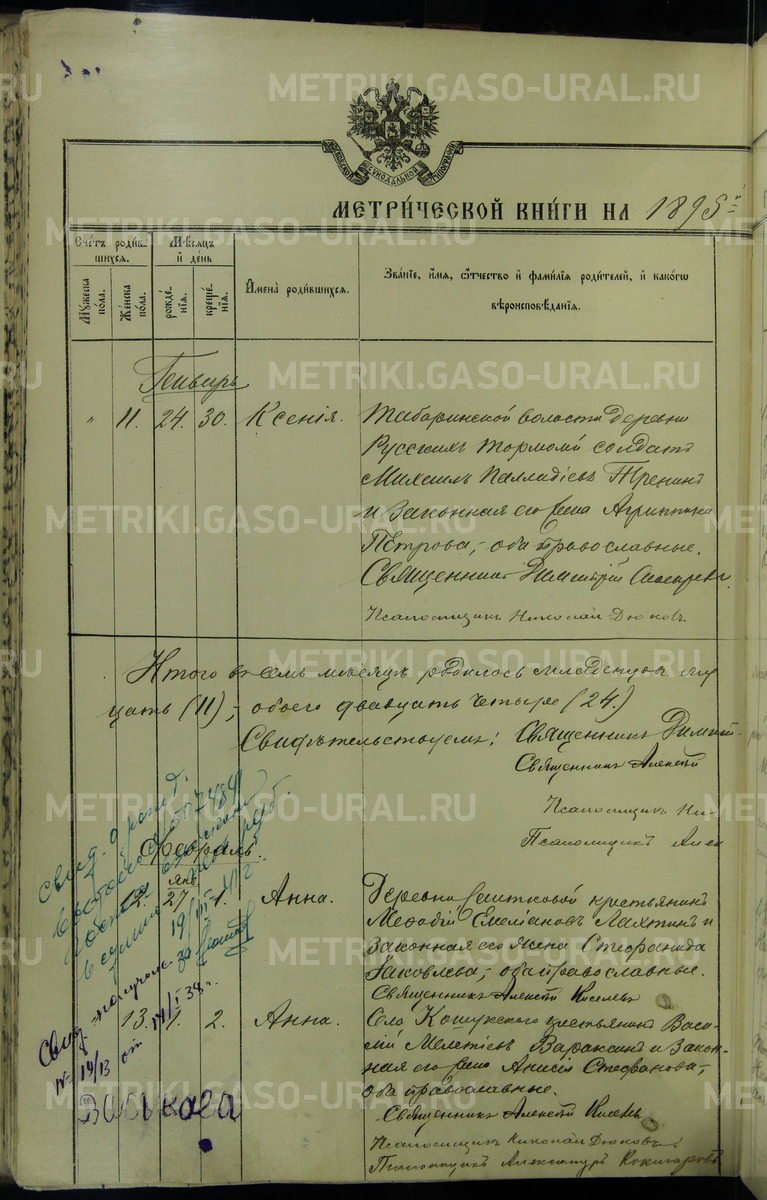 METRIKI.GASO-URAL.RU
МОСКОВСКОЙ СѴНОДАЛЬНОЙ ТИПОГРАФІИ
МЕТРИ́ЧЕСКОЙ КНИ́ГИ НА 1895
Сче́тъ роди́в-
шихся.
Мѣ́сяцъ
и҆ де́нь
Му́жеска по́ла.
Же́нска по́ла.
рожде́-
нїя.
креще́-
нїя.
И҆мена̀ роди́вшихся.
Зва́нїе, и҆́мѧ, ѻ҆́тчество и҆ фами́лїя роди́телей, и҆ како́гѡ
вѣроисповѣ́данїя.
Генварь
" 11. 24. 30. Ксенія. Табаринской волости деревни
Русскихъ Тормоли солдатъ
Михаилъ Палладіевъ Тренинъ
и законная его жена Агриппина
Петрова, оба православные.
Священникъ Димитрій
Псаломщикъ Николай Дюковъ.
Итого въ семъ мѣсяцѣ родилось младенцевъ
цать (11), обоего двадцать четыре (24.)
Свидѣтельствуемъ: Священникъ Димит-
Священникъ Алексій
Псаломщикъ Ни-
Псаломщикъ Алек
Февраль.
Янв.
12. 27. 1. Анна. Деревни крестьянинъ
Меѳодій Емеліановъ Лахтинъ и
законная его жена Стефанида
Іаковлева, оба православные.
Священникъ Алексій Киселевъ
13. 1. 2. Анна. Села Кошукскаго крестьянинъ Васи-
лій Мелетіевъ Вараксинъ и закон-
ная его жена Анисія Стефанова,
оба православные.
Священникъ Алексій Киселевъ
Псаломщикъ Николай Дюковъ.
Псаломщикъ Александръ
свид. о рожд.
19/III
Свид. получено
№ 19/13 от 14/I 38 г.
Васькова